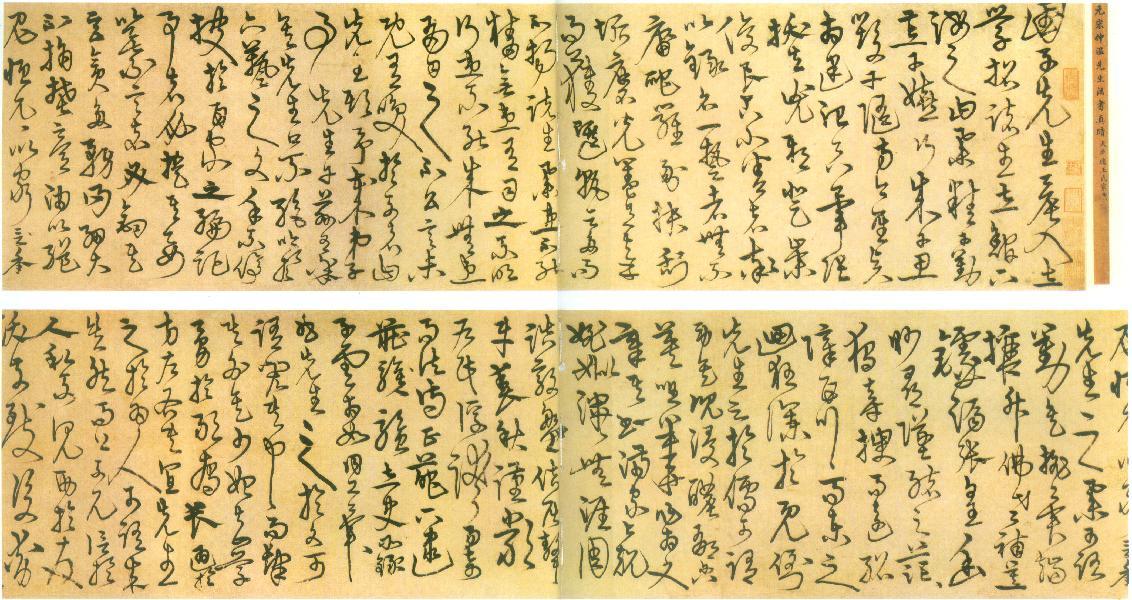 國子先生晨入太
學招諸生立館下
誨之曰業精于勤
荒于嬉行成于思
毀于隨方今聖賢
相逢治具畢張
拔去兇邪登崇
俊良占小善者率
以錄名一藝者無不
庸爬羅剔抉刮
垢磨光蓋有幸
而獲選孰云多而
不揚諸生業患不能
精無患有司之不明
行患不能成無患
有司之不公言未
既有笑於列者曰
先生欺予哉弟子
事先生于茲有年
矣先生口不絕吟於
六藝之文手不停
披於百家之編記
事者必提其要
纂言者必鉤其
玄貪多務得細大
不捐焚膏油以繼
晷恆兀兀以窮年
先生之業可謂
勤矣觝排異端
攘斥佛老補苴
罅漏張皇幽
眇尋墜緒之茫茫
獨旁搜而遠紹
障百川而東之
迴狂瀾於既倒
先生之於儒可謂
勞矣沉浸醲郁含
英咀華作為文
章其書滿家上規
姚姒渾渾無涯周
誥殷盤佶屈聱
牙春秋謹嚴
左氏浮誇易奇
而法詩正而葩下逮
莊騷太史所錄
子雲相如同工異曲
先生之於文可
謂閎其中而肆
其外矣少始知學
勇於敢為長通於
方左右其宜先生
之於為人可謂成
矣然而公不見信於
人私不見助於友
跋前躓後動輒